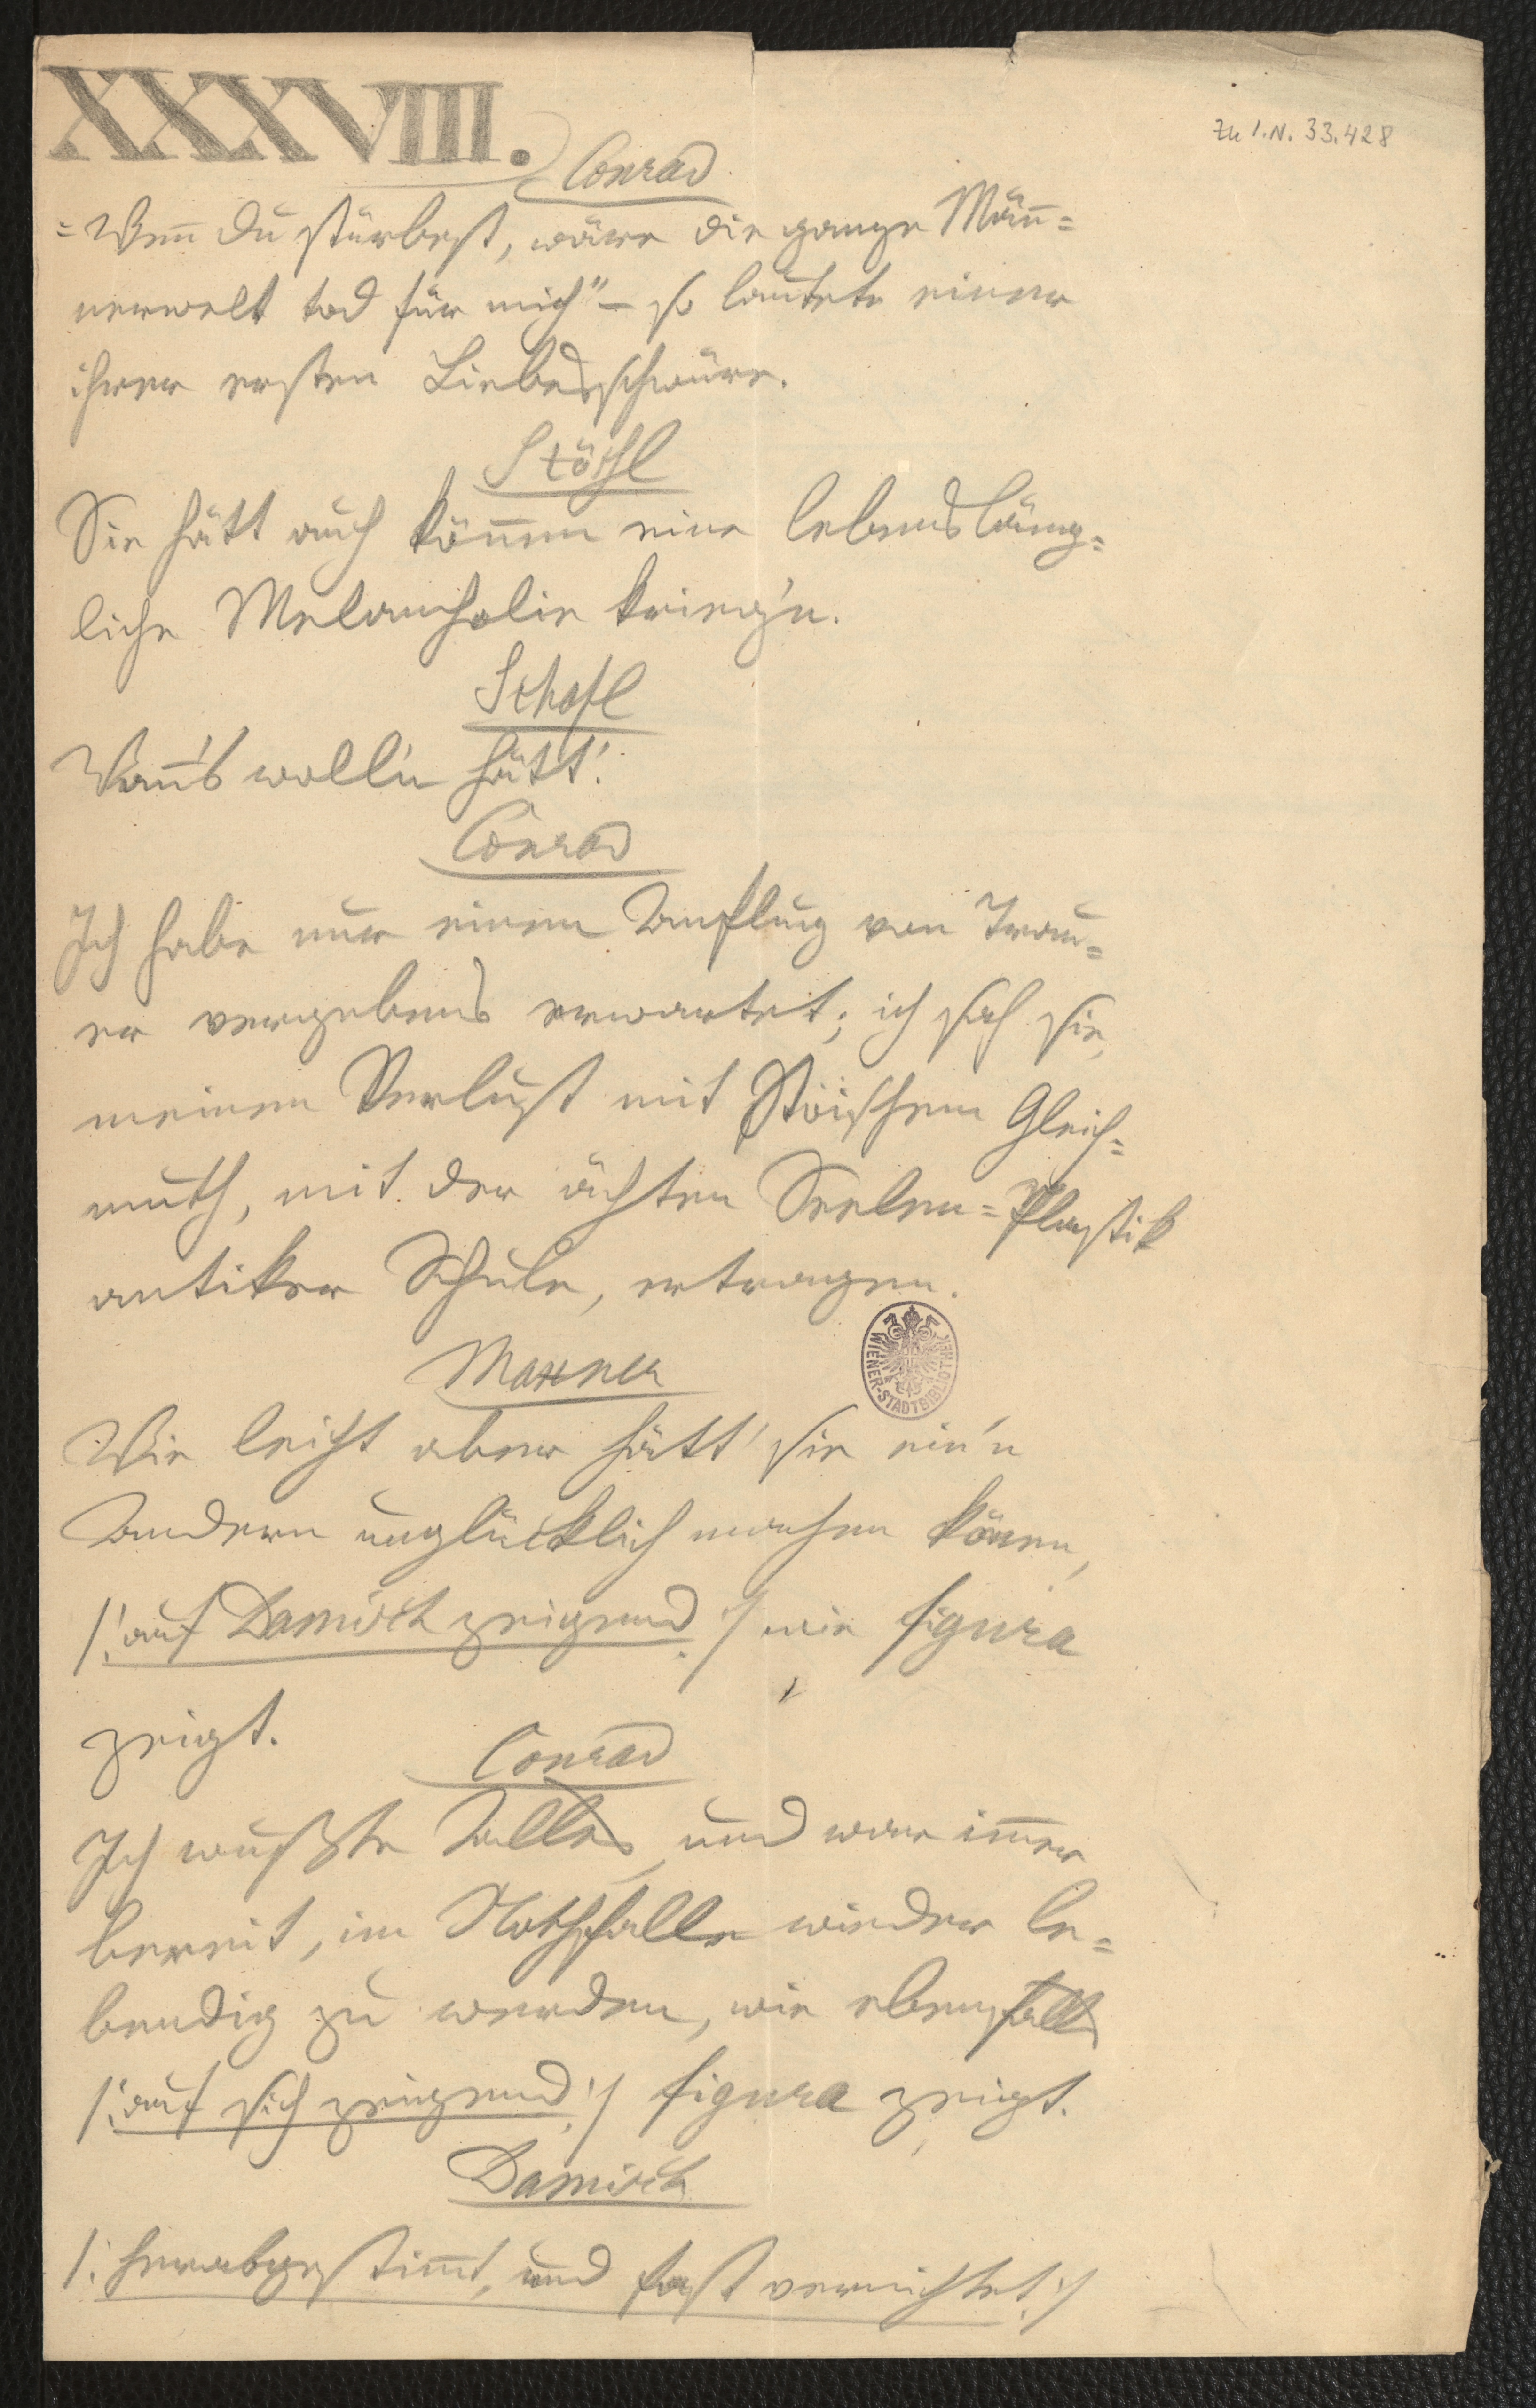 XXXVIII.
Zu I.N. 33.428
Conrad
"Wenn du stürbest, wäre die ganze Män=
nerwelt tod für mich" – so lautete einer
ihrer ersten Liebesschwüre.
Stößl
Sie hätt auch können eine lebensläng=
liche Melancholie krieg'n.
Schafl
Wann's woll'n hätt'.
Conrad
Ich habe nur einen Anflug von Trau=
er vergebens erwartet; ich sah sie,
meinen Verlust mit stoischem Gleich=
muth, mit der ächten Seelen=Plastik
antiker Schule, ertragen.
Maxner
Wie leicht aber hätt' sie ein'n
Andern unglücklich machen können,
/: auf Damisch zeigend :/ wie figura
zeigt.
Conrad
Ich wußte Alles, und war im̅er
bereit, im Nothfalle wieder le=
bendig zu werden, wie ebenfalls
/: auf sich zeigend :/ figura zeigt.
Damisch
/: herabgestim̅t, und fast vernichtet :/
WIENER-STADTBIBLIOTHEK